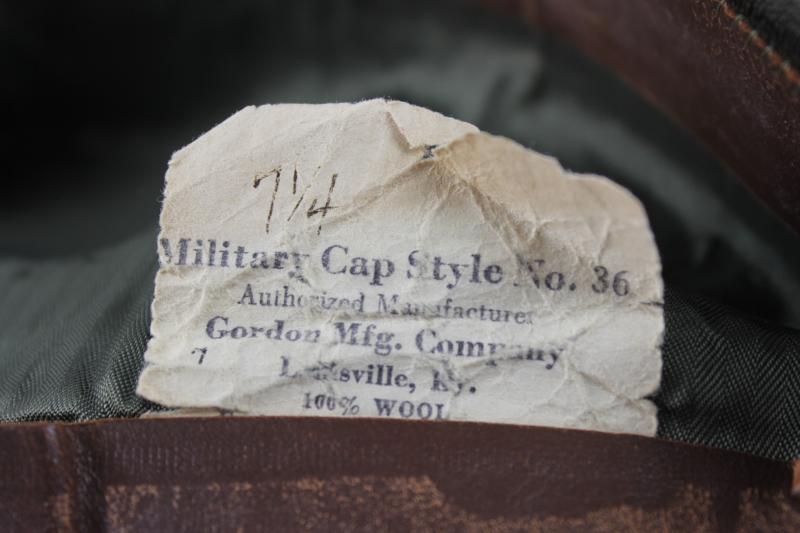 7 1/4
Military Cap Style No. 36
Authorized Manufacturer
Gordon Mfg. Company
7
Louisville, Ky.
100% WOOL